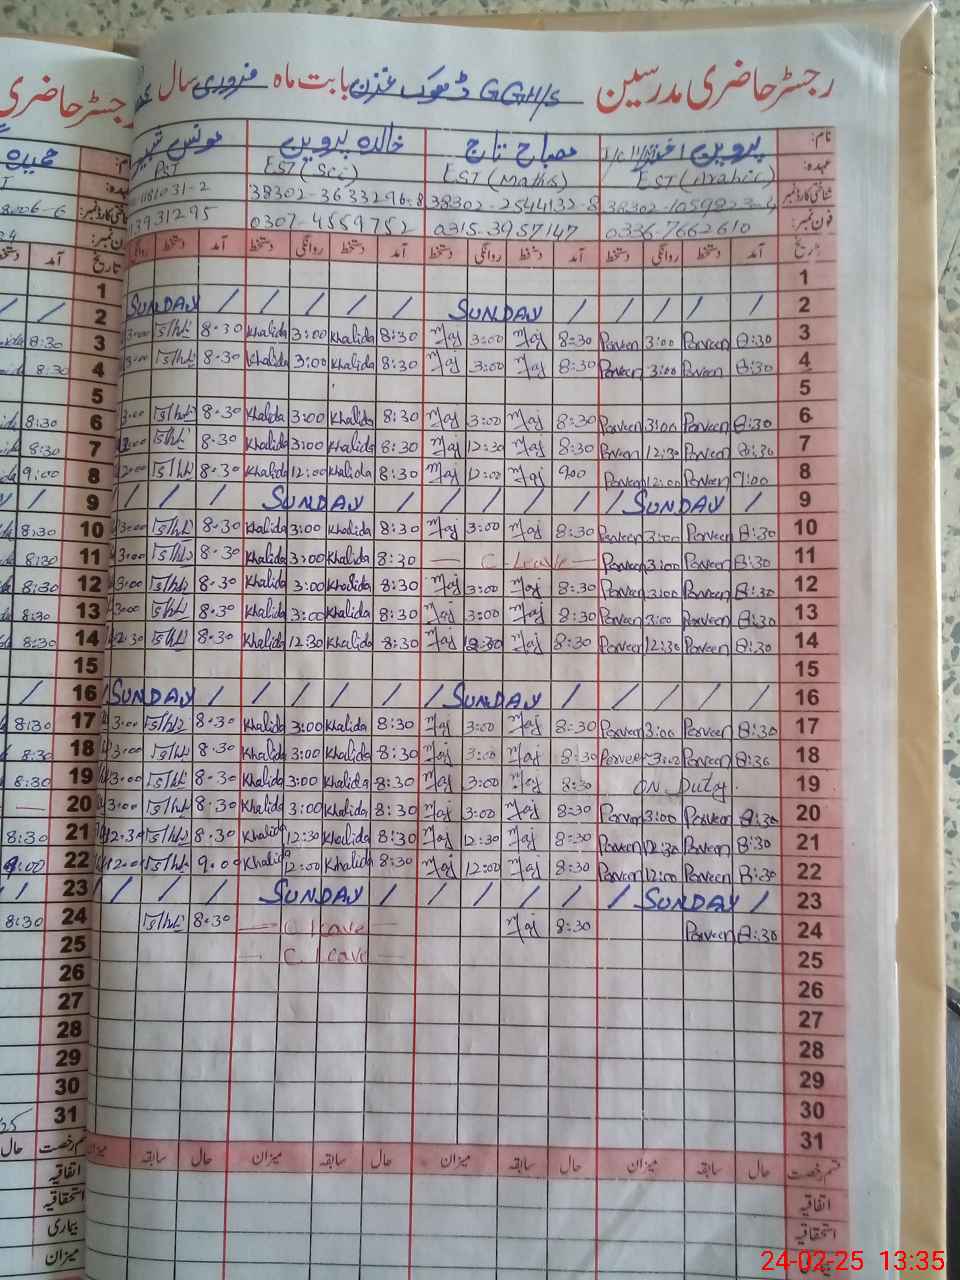 رجسٹر حاضری مدرسین GGH/S ڈھوک غزن بابت ماہ فروری سال
رجسٹر حاضری
نام: پروین اختر مصباح تاج خالدہ پروین مونس
عہدہ: EST (Arabic) EST (Maths) EST (Sci) PST
شناختی کارڈ نمبر: 38302-2544132-8 38302-3633296-8 181031-2
فون نمبر: 0336-7662610 0315-3957147 0307-4559752 3931295
تاریخ آمد دستخط روانگی دستخط آمد دستخط روانگی دستخط آمد دستخط روانگی دستخط آمد دستخط روانگی
1 1
2 SUNDAY / / / / / SUNDAY / / / / / 2
3 3:00 8:30 Khalida 3:00 Khalida 8:30 Maj 3:00 Maj 8:30 Parveen 3:00 Parveen 8:30 3
4 3:00 8:30 Khalida 3:00 Khalida 8:30 Maj 3:00 Maj 8:30 Parveen 3:00 Parveen 8:30 4
5 5
6 3:00 8:30 Khalida 3:00 Khalida 8:30 Maj 3:00 Maj 8:30 Parveen 3:00 Parveen 8:30 6
7 8:30 Khalida 3:00 Khalida 8:30 Maj 12:30 Maj 8:30 Parveen 12:30 Parveen 8:30 7
8 12:00 8:30 Khalida 12:00 Khalida 8:30 Maj 12:00 Maj 900 Parveen 12:00 Parveen 9:00 8
9 / / / SUNDAY / / / / / / SUNDAY / 9
10 3:00 8:30 Khalida 3:00 Khalida 8:30 Maj 3:00 Maj 8:30 Parveen 3:00 Parveen 8:30 10
11 3:00 8:30 Khalida 3:00 Khalida 8:30 — C.Leave — Parveen 3:00 Parveen 8:30 11
12 3:00 8:30 Khalida 3:00 Khalida 8:30 Maj 3:00 Maj 8:30 Parveen 3:00 Parveen 8:30 12
13 3:00 8:30 Khalida 3:00 Khalida 8:30 Maj 3:00 Maj 8:30 Parveen 3:00 Parveen 8:30 13
14 12:30 8:30 Khalida 12:30 Khalida 8:30 Maj 12:30 Maj 8:30 Parveen 12:30 Parveen 8:30 14
15 15
16 SUNDAY / / / / / / SUNDAY / / / / / 16
17 3:00 8:30 Khalida 3:00 Khalida 8:30 Maj 3:00 Maj 8:30 Parveen 3:00 Parveen 8:30 17
18 3:00 8:30 Khalida 3:00 Khalida 8:30 Maj 3:00 Maj 8:30 Parveen 3:00 Parveen 8:30 18
19 3:00 8:30 Khalida 3:00 Khalida 8:30 Maj 3:00 Maj 8:30 ON Duty. 19
20 3:00 8:30 Khalida 3:00 Khalida 8:30 Maj 3:00 Maj 8:30 Parveen 3:00 Parveen 8:30 20
21 12:30 8:30 Khalida 12:30 Khalida 8:30 Maj 12:30 Maj 8:30 Parveen 12:30 Parveen 8:30 21
22 12:00 9:00 Khalida 12:00 Khalida 8:30 Maj 12:00 Maj 8:30 Parveen 12:00 Parveen 8:30 22
23 / / / SUNDAY / / / / / / SUNDAY / 23
24 8:30 — C leave — Maj 8:30 Parveen 8:30 24
25 — C. leave — 25
26 26
27 27
28 28
29 29
30 30
31 31
قسم رخصت حال سابقہ میزان حال سابقہ میزان حال سابقہ میزان حال سابقہ میزان
اتفاقیہ اتفاقیہ
استحقاقیہ استحقاقیہ
بیماری
میزان
24-02-25 13:35